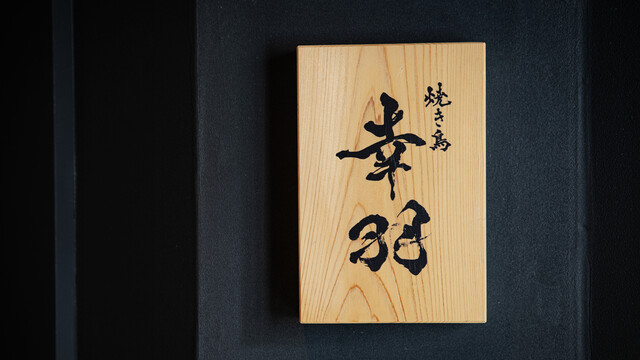 焼き鳥
幸羽